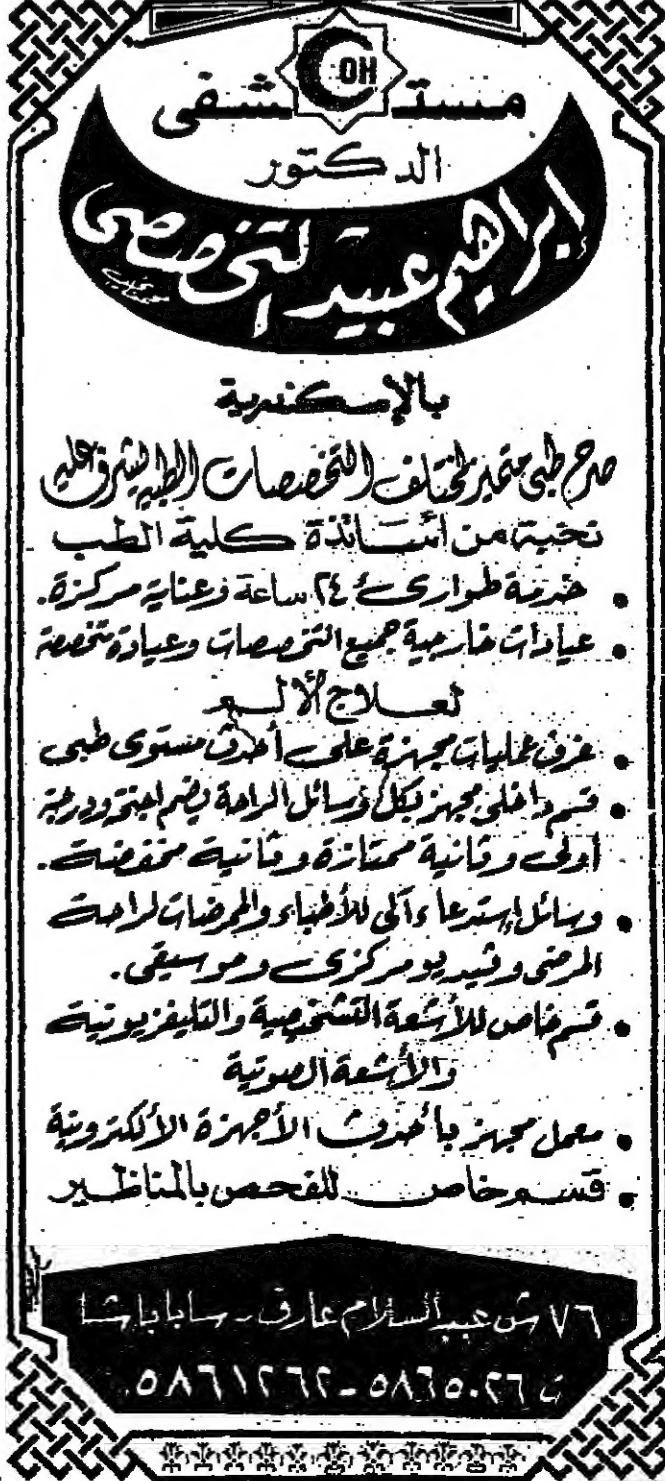 OH
مستشفى
الدكتور
إبراهيم عبيد التخصصى
بالإسكندرية
صرح طبى متميز لمختلف التخصصات الطبية يشرف عليه
نخبة من أساتذة كلية الطب
• خدمة طوارئ ٢٤ ساعة وعناية مركزة.
• عيادات خارجية جميع التخصصات وعيادة متخصصة
لعلاج الألم
• غرف عمليات مجهزة على أحدث مستوى طبى
• قسم داخلى مجهز بكل وسائل الراحة يضم اجنحة ودرجة
أولى وثانية ممتازة وثانية مخفضة.
• وسائل إستدعاء آلى للأطباء والممرضات لراحة
المرضى وفيديو مركزى وموسيقى.
• قسم خاص للأشعة التشخيصية والتليفزيونية
والأشعة الصوتية
• معمل مجهز بأحدث الأجهزة الألكترونية
• قسم خاص للفحص بالمناظير
٧٦ ش عبد السلام عارف - سابا باشا
ت ٥٨٦٥٠٢٦ - ٥٨٦١٢٦٢